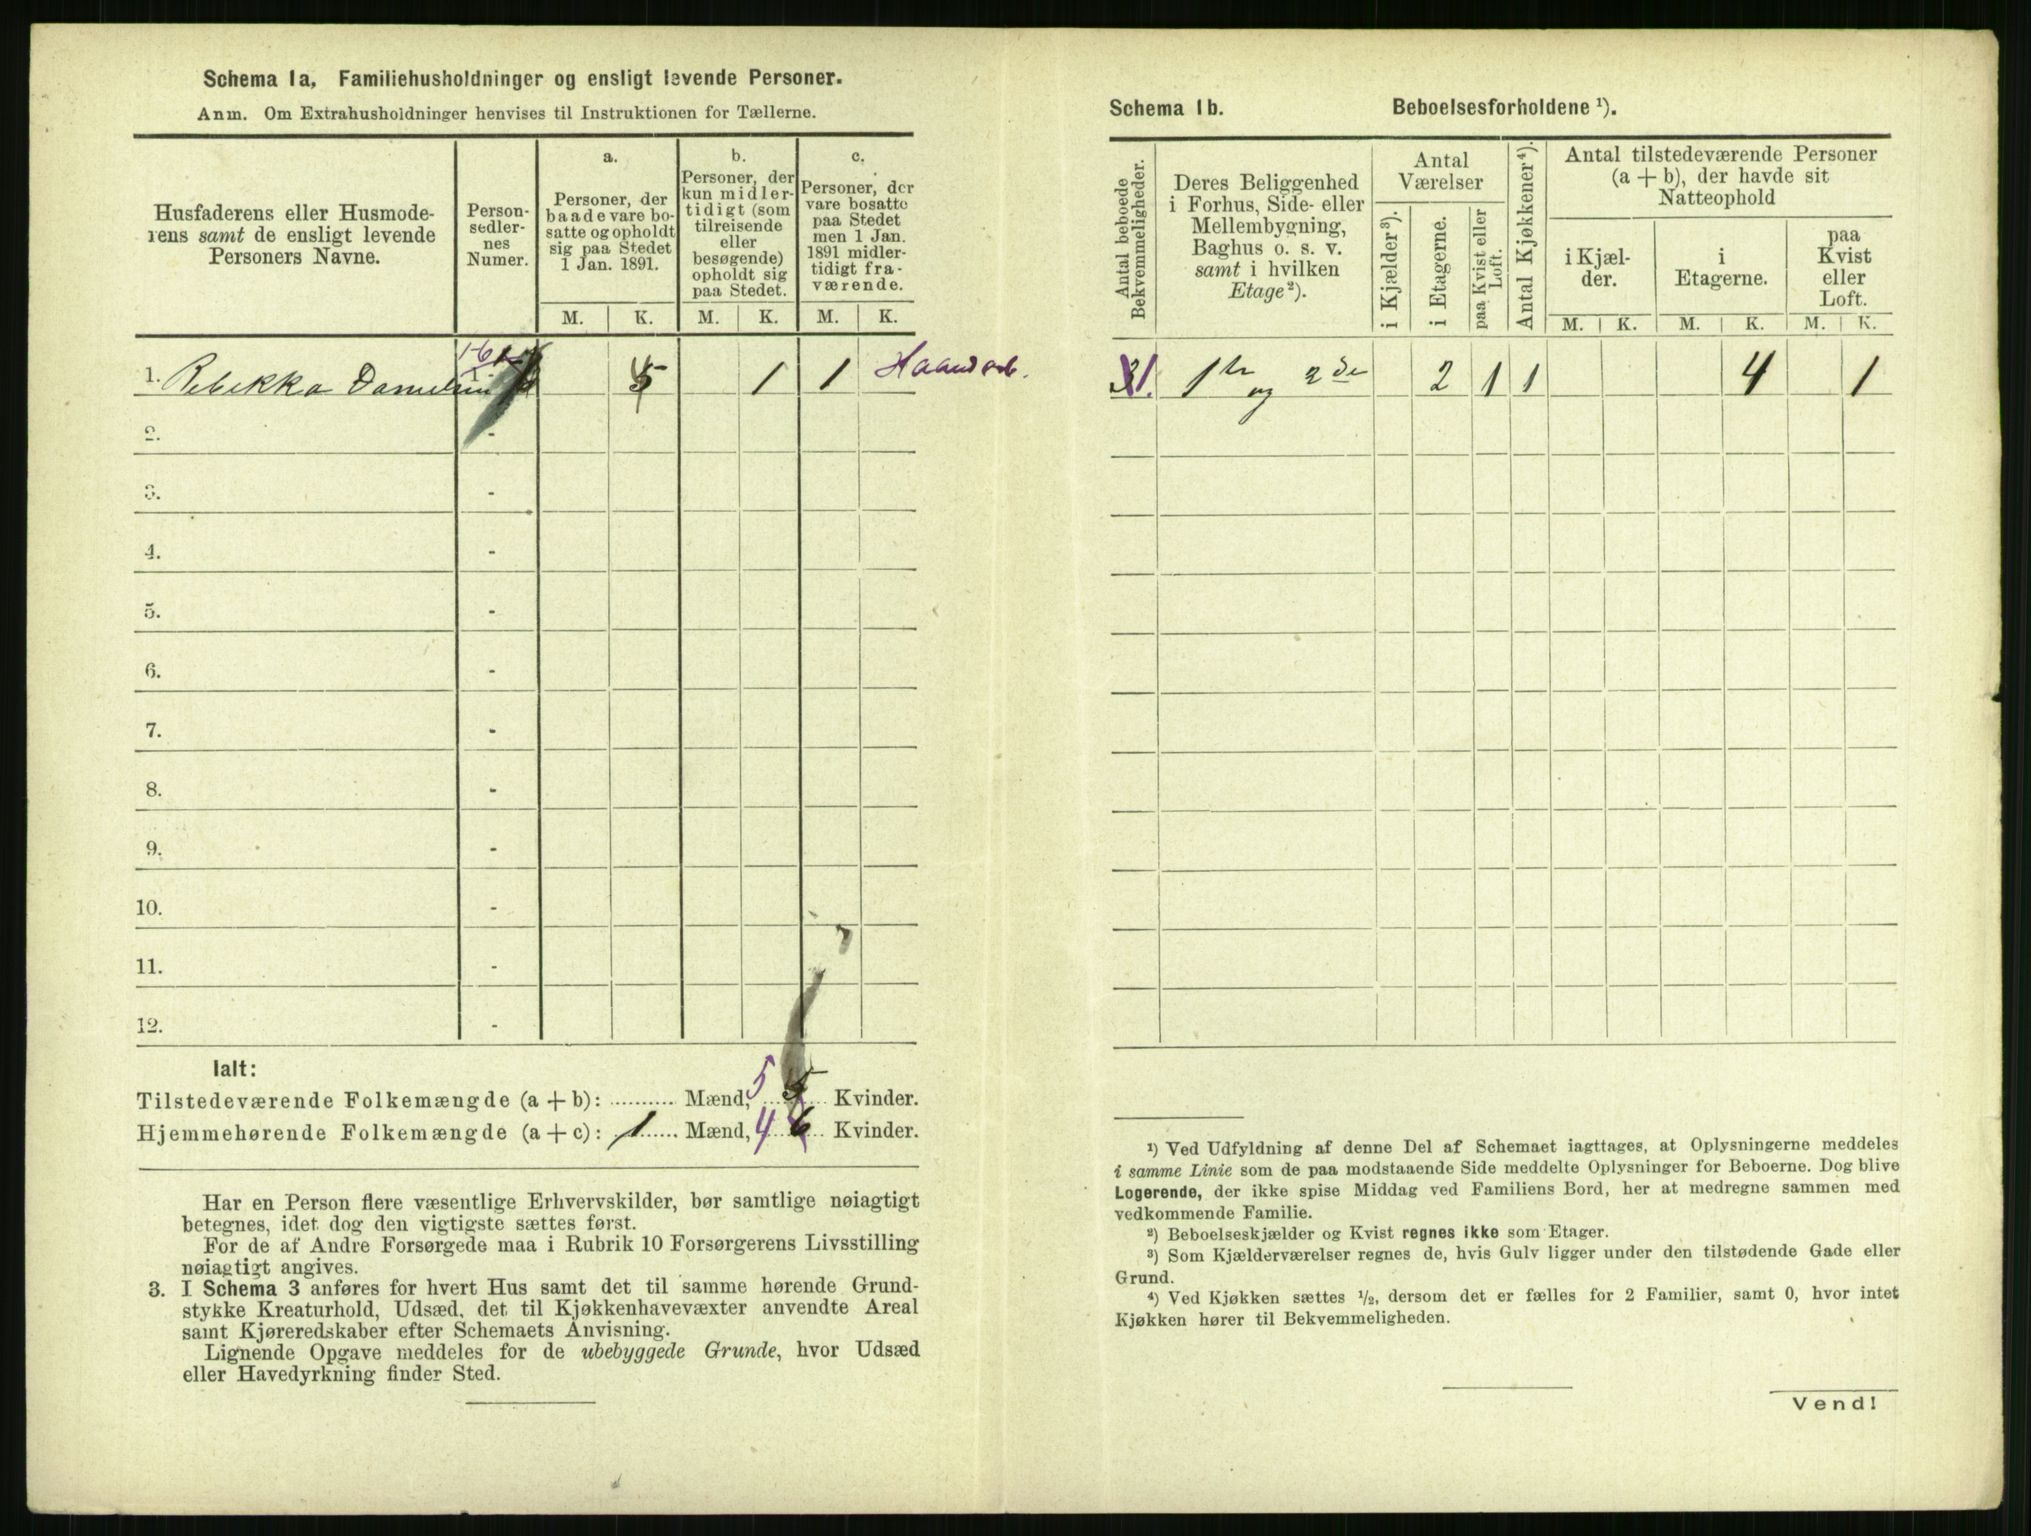 Schema 1a, Familiehusholdninger og ensligt levende Personer.
Anm. Om Extrahusholdninger henvises til Instruktionen for Tællerne.
Husfaderens eller Husmode-
rens samt de ensligt levende
Personers Navne.
Person-
sedler-
nes
Numer.
a.
Personer, der
baade vare bo-
satte og opholdt
sig paa Stedet
1 Jan. 1891.
b.
Personer, der
kun midler-
tidigt (som
tilreisende
eller
besøgende)
opholdt sig
paa Stedet.
c.
Personer, der
vare bosatte
paa Stedet
men 1 Jan.
1891 midler-
tidigt fra-
værende.
M. K. M. K. M. K.
1. Rebekka Danielsen 1 1 Haandarb.
2. -
3. -
4. -
5. -
6. -
7. -
8. -
9. -
10. -
11. -
12. -
Ialt:
Tilstedeværende Folkemængde (a + b): .......... Mænd, 5 5 Kvinder.
Hjemmehørende Folkemængde (a + c): 1 Mænd, 4 6 Kvinder.
Har en Person flere væsentlige Erhvervskilder, bør samtlige nøiagtigt
betegnes, idet dog den vigtigste sættes først.
For de af Andre Forsørgede maa i Rubrik 10 Forsørgerens Livsstilling
nøiagtigt angives.
3. I Schema 3 anføres for hvert Hus samt det til samme hørende Grund-
stykke Kreaturhold, Udsæd, det til Kjøkkenhavevæxter anvendte Areal
samt Kjøreredskaber efter Schemaets Anvisning.
Lignende Opgave meddeles for de ubebyggede Grunde, hvor Udsæd
eller Havedyrkning finder Sted.
Schema 1b. Beboelsesforholdene ¹).
Antal beboede
Bekvemmeligheder.
Deres Beliggenhed
i Forhus, Side- eller
Mellembygning,
Baghus o. s. v.
samt i hvilken
Etage²).
Antal
Værelser
i Kjælder³).
i Etagerne.
paa Kvist eller
Loft.
Antal Kjøkkener⁴).
Antal tilstedeværende Personer
(a + b), der havde sit
Natteophold
i Kjæl-
der.
i
Etagerne.
paa
Kvist
eller
Loft.
M. K. M. K. M. K.
1. 1ste og 2den 2 1 1 4 1
¹) Ved Udfyldning af denne Del af Schemaet iagttages, at Oplysningerne meddeles
i samme Linie som de paa modstaaende Side meddelte Oplysninger for Beboerne. Dog blive
Logerende, der ikke spise Middag ved Familiens Bord, her at medregne sammen med
vedkommende Familie.
²) Beboelseskjælder og Kvist regnes ikke som Etager.
³) Som Kjælderværelser regnes de, hvis Gulv ligger under den tilstødende Gade eller
Grund.
⁴) Ved Kjøkken sættes ½, dersom det er fælles for 2 Familier, samt 0, hvor intet
Kjøkken hører til Bekvemmeligheden.
Vend!